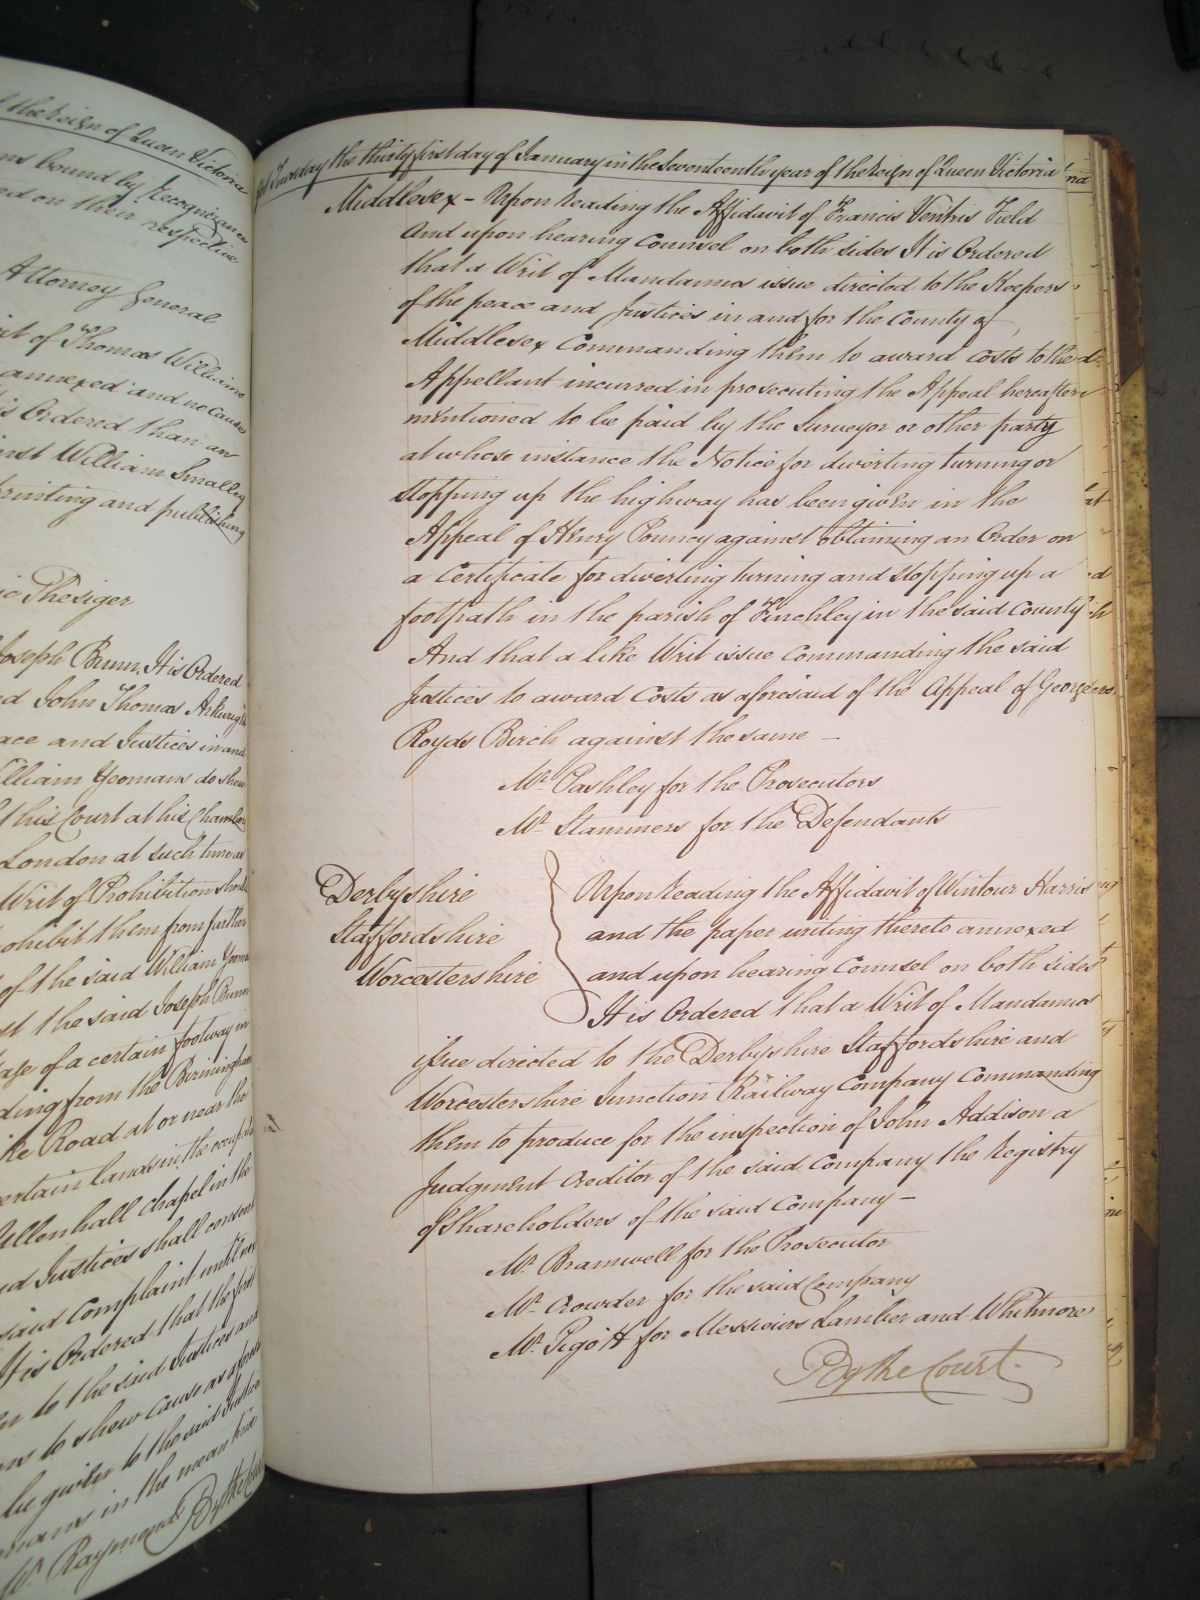 the Reign of Queen Victoria
ns bound by Recognizance
ed on their respective
Attorney General
it of Thomas Williams
annexed and no cause
is Ordered than an
inst William Smalley
printing and publishing
ic Thesiger
Joseph Bunn. It is Ordered
d John Thomas Arkwright
ace and Justices in and
illiam Yeomans do shew
this Court at his Chambers
London at such time as
Writ of Prohibition should
ohibit them from further
of the said William Yeomans
st the said Joseph Bunn
age of a certain footway in
ding from the Birmingham
ike Road at or near the
certain lands in the occupation
Ullenhall Chapel in the
ud Justices shall consent
said Complaint until
It is Ordered that the first
n to the said Justices and
ns to shew cause as aforesaid
be given to the said Justices
mans in the mean time
Mr. Raymond By the Court
On Tuesday the thirty first day of January in the seventeenth year of the Reign of Queen Victoria
Middlesex – Upon reading the Affidavit of Francis Ventris Field
And upon hearing Counsel on both sides It is Ordered
that a Writ of Mandamus issue directed to the Keepers
of the peace and Justices in and for the County of
Middlesex Commanding them to award costs to the
Appellant incurred in prosecuting the Appeal hereafter
mentioned to be paid by the Surveyor or other party
at whose instance the Notice for diverting turning or
stopping up the highway has been given in the
Appeal of Henry Pouncy against obtaining an Order on
a Certificate for diverting turning and stopping up a
footpath in the parish of Finchley in the said County
And that a like Writ issue commanding the said
Justices to award Costs as aforesaid of the Appeal of George
Royds Birch against the same –
Mr. Pashley for the Prosecutors
Mr. Stammers for the Defendants
Derbyshire
Staffordshire
Worcestershire
Upon reading the Affidavit of Wintour Harris
and the paper writing thereto annexed
and upon hearing Counsel on both sides
It is Ordered that a Writ of Mandamus
issue directed to the Derbyshire Staffordshire and
Worcestershire Junction Railway Company Commanding
them to produce for the inspection of John Addison a
Judgment Creditor of the said Company the Registry
of Shareholders of the said Company –
Mr. Bramwell for the Prosecutor
Mr. Crowder for the said Company
Mr. Pigott for Messieurs Lamber and Whitmore
By the Court.